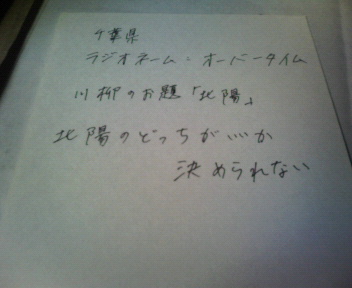 千葉県
ラジオネーム:オードータイム
川柳のお題「北陽」
北陽のどっちがいいか
決められない